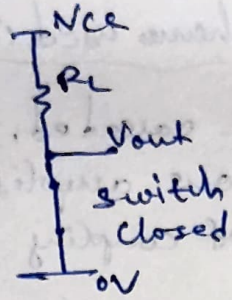 Vcc
RL
Vout
switch
closed
0V